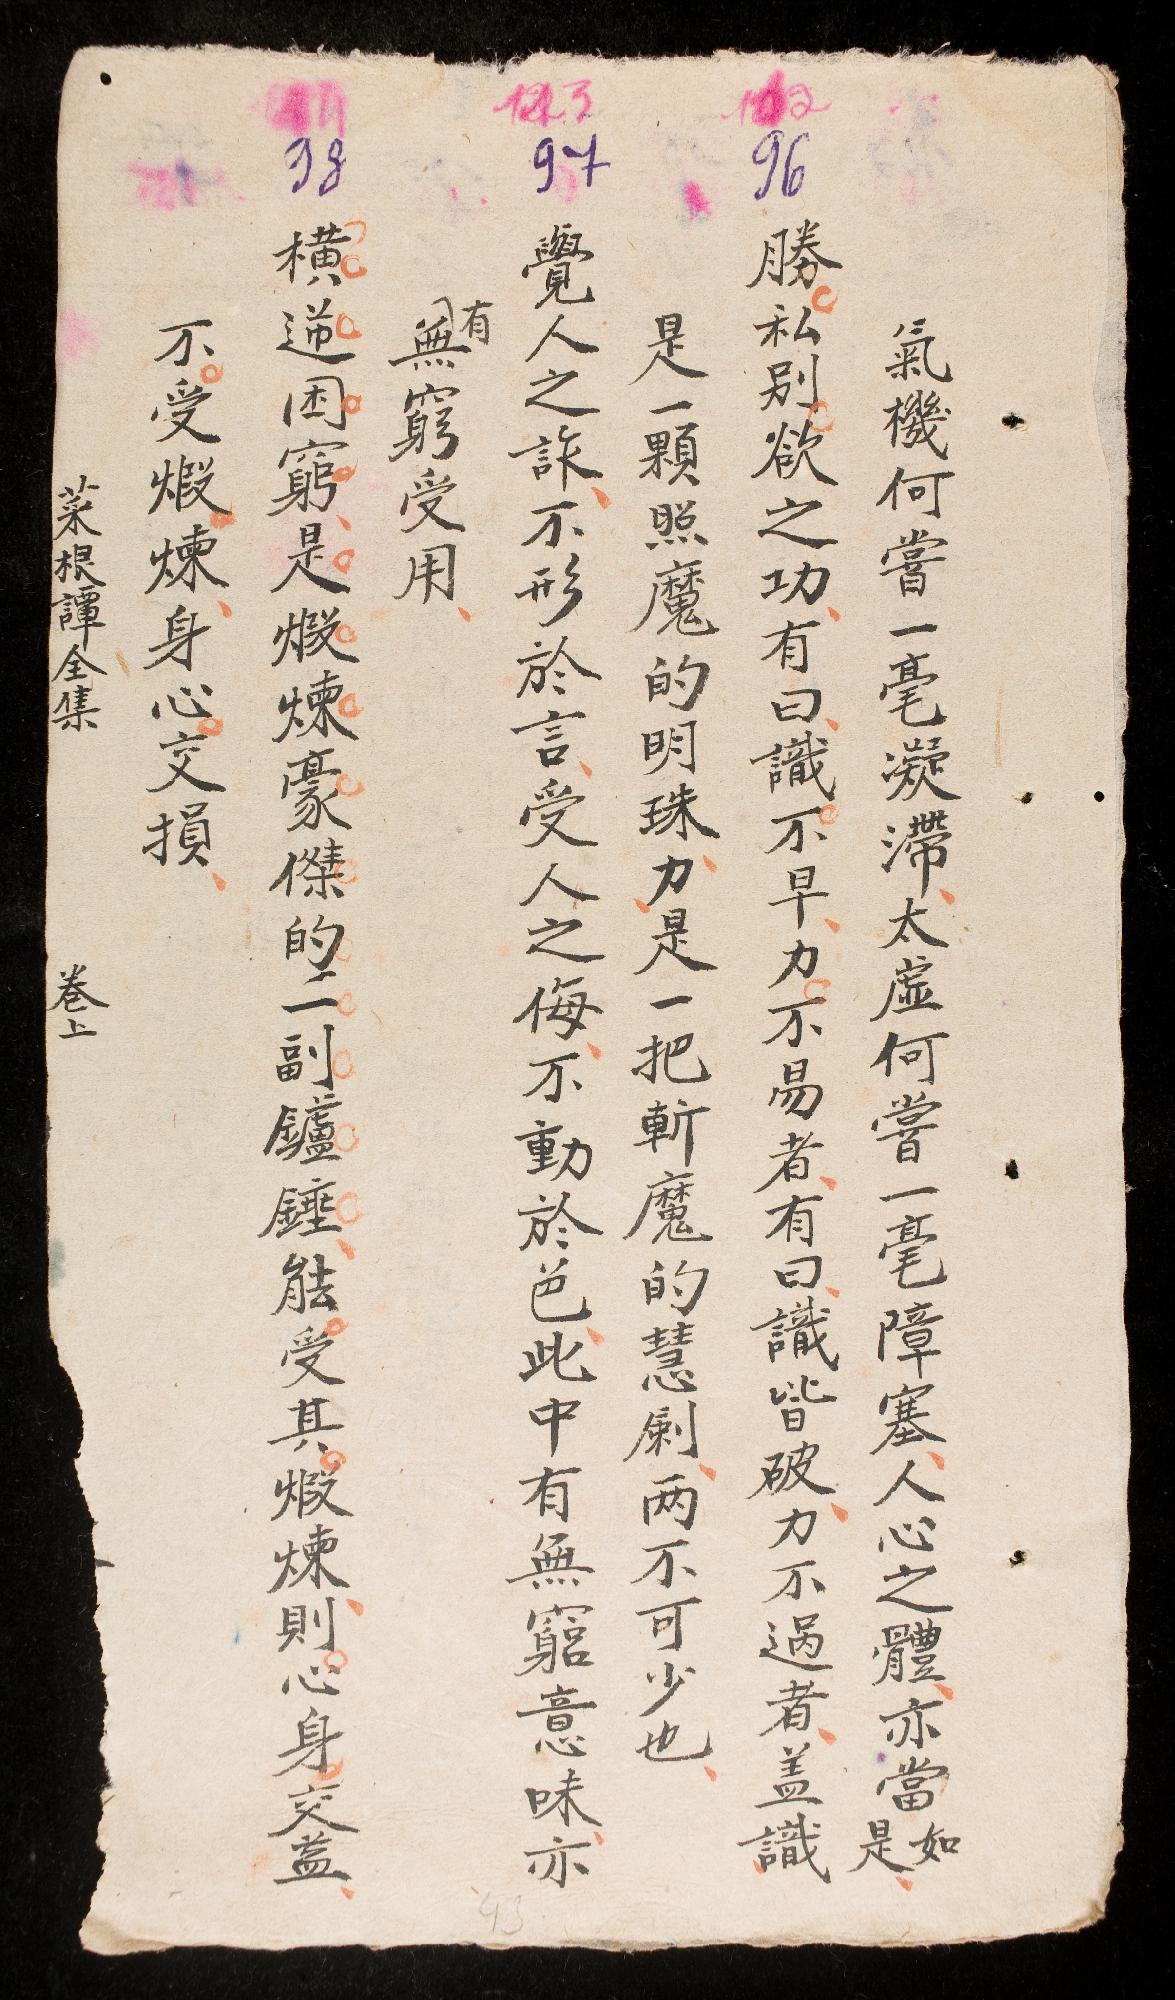 氣機何嘗一毫凝滯、太虛何嘗一毫障塞、人心之體、亦當如是、
96
勝私別欲之功、有曰、識不早、力不易者、有曰、識皆破、力不過者、盖識
是一顆照魔的明珠、力是一把斬魔的慧劍、两不可少也、
97
覺人之詐、不形於言、受人之侮、不動於色、此中有無窮意味、亦
有無窮受用、
98
橫逆困窮、是煆煉豪傑的一副鑪錘、能受其煆煉、則心身交益、
不受煆煉、身心交損、
菜根譚全集 卷上
43